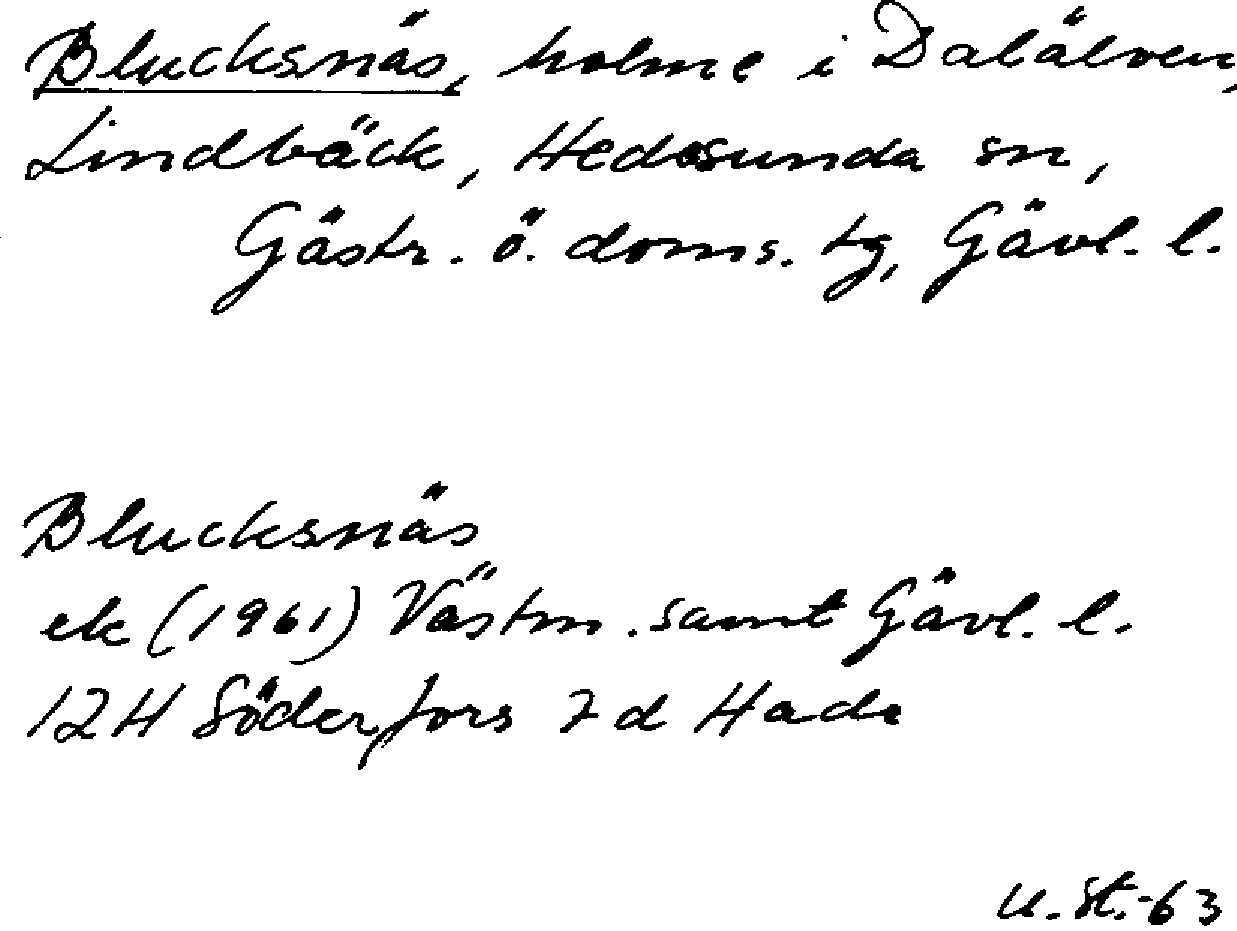 Blucksnäs, holme i Dalälven,
Lindbäck, Hedesunda sn,
Gästr. ö. doms. tg, Gävl. l.
Blucksnäs
ek (1961) Västm. samt Gävl. l.
12H Söderfors 7d Hade
U. St.-63